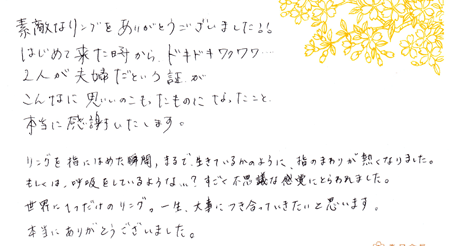 素敵なリングをありがとうございました!!
はじめて来た時から、ドキドキワクワク…
2人が夫婦だという証が
こんなに思いのこもったものになったこと、
本当に感謝いたします。
リングを指にはめた瞬間、まるで、生きているかのように、指のまわりが熱くなりました。
もしくは、呼吸をしているような…? すごく不思議な感覚にとらわれました。
世界に1つだけのリング。一生、大事につき合っていきたいと思います。
本当にありがとうございました。